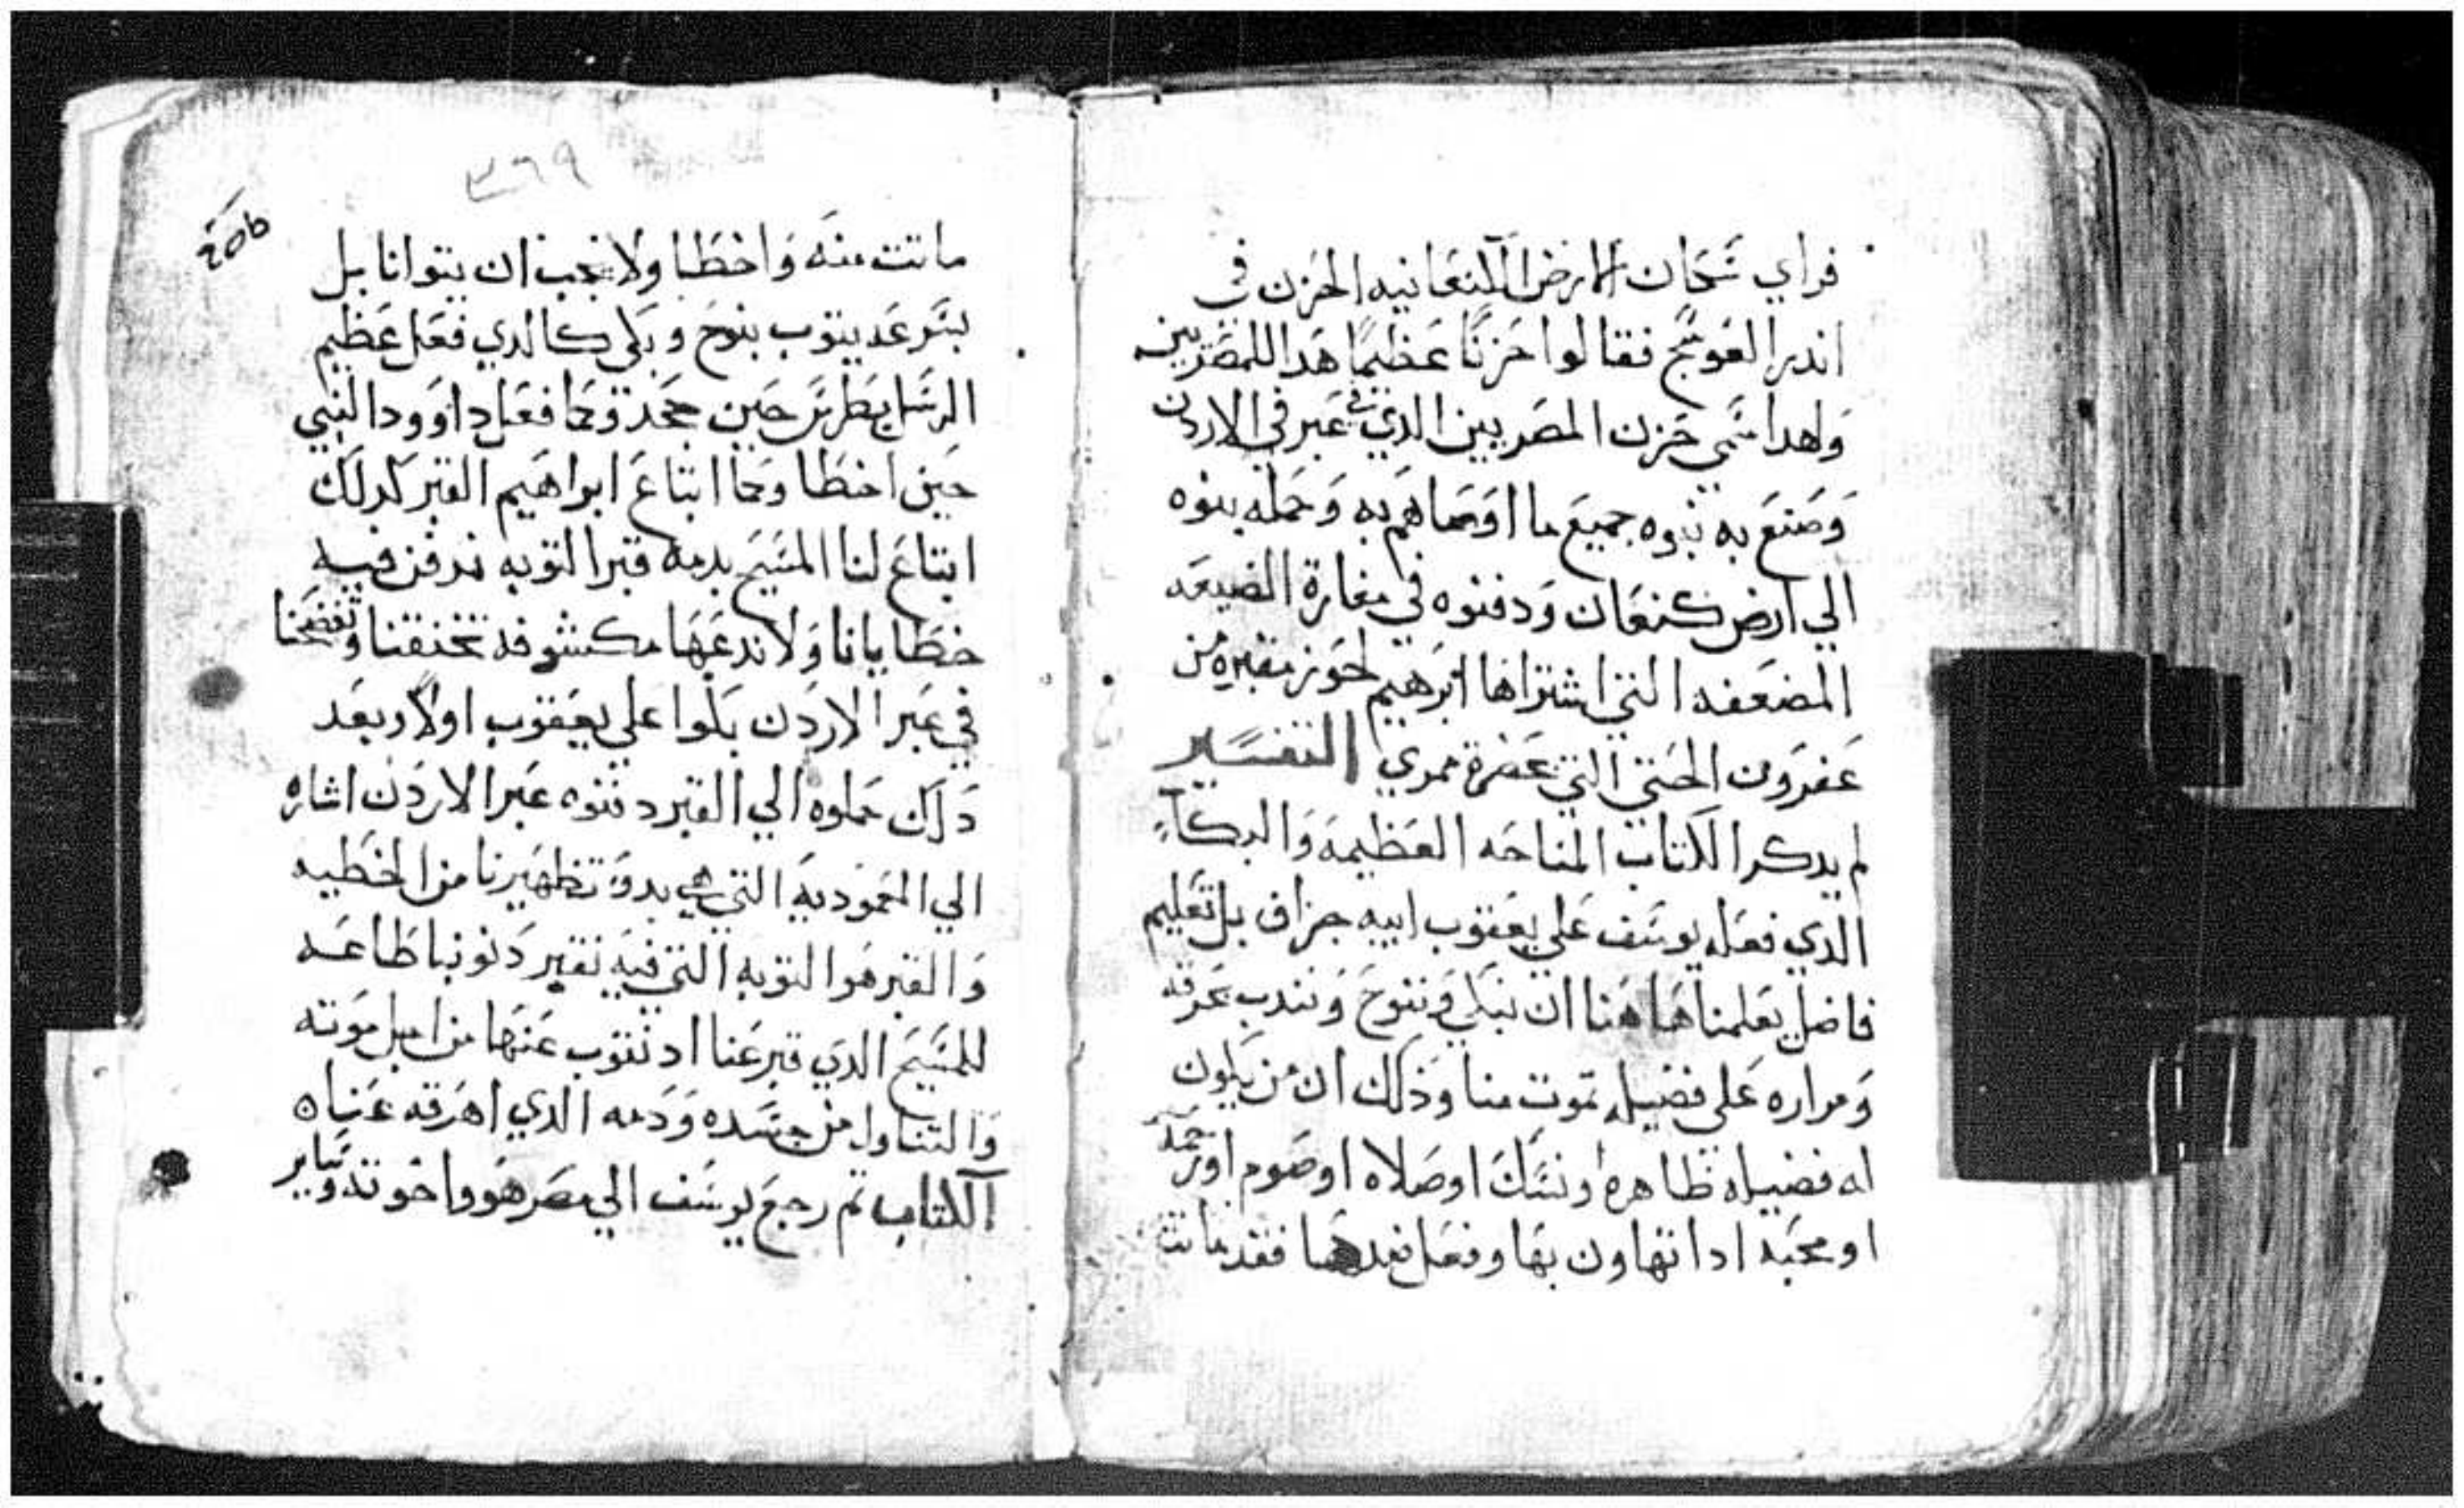 فراي سكان الارض الكنعانيه الحزن في
اندر العوسج فقالوا حزنًا عظيمًا هدا للمصريين
ولهدا سمي حزن المصريين الدي في عبر الاردن
وصنع به بنوه جميع ما اوصاهم به وحمله بنوه
الي ارض كنعان ودفنوه في مغارة الضيعه
المضعفه التي اشتراها ابرهيم لحوز مقبره من
عفرون الحتي التي حضرة ممري التفسير
لم يدكر الكتاب المناحه العظيمه والبكاء
الدي فعله يوسف علي يعقوب ابيه جزاف بل تعليم
فاضل يعلمنا هاهنا ان نبكي وننوح ونندب بحرقه
ومراره علي فضيله تموت منا وذلك ان من يكون
له فضيله ظاهره او نسك او صلاه او صوم او رحمه
او محبه ادا تهاون بها وفعل ضدها فقد ماتت
٣٦٩
ماتت منه واخطا ولا يجب ان يتوانا بل
بسرعه يتوب بنوح وبكي كالدي فعل عظيم
الرسل بطرس حين جحد وكما فعل داوود النبي
حين اخطا وكما ابتاع ابراهيم القبر كدلك
ابتاع لنا المسيح بدمه قبر التوبه ندفن فيه
خطايانا ولا ندعها مكشوفه تخنقنا وتفضحنا
في عبر الاردن بكوا علي يعقوب اولا وبعد
دلك حملوه الي القبر دفنوه عبر الاردن اشاره
الي المعموديه التي هي بدو تطهيرنا من الخطيه
والقبر هو التوبه التي فيه نقبر دنوبنا طاعه
للمسيح الدي قبر عنا اد نتوب عنها من اجل موته
والتناول من جسده ودمه الدي اهرقه عنا
الكتاب تم رجع يوسف الي مصر هو واخوته وساير